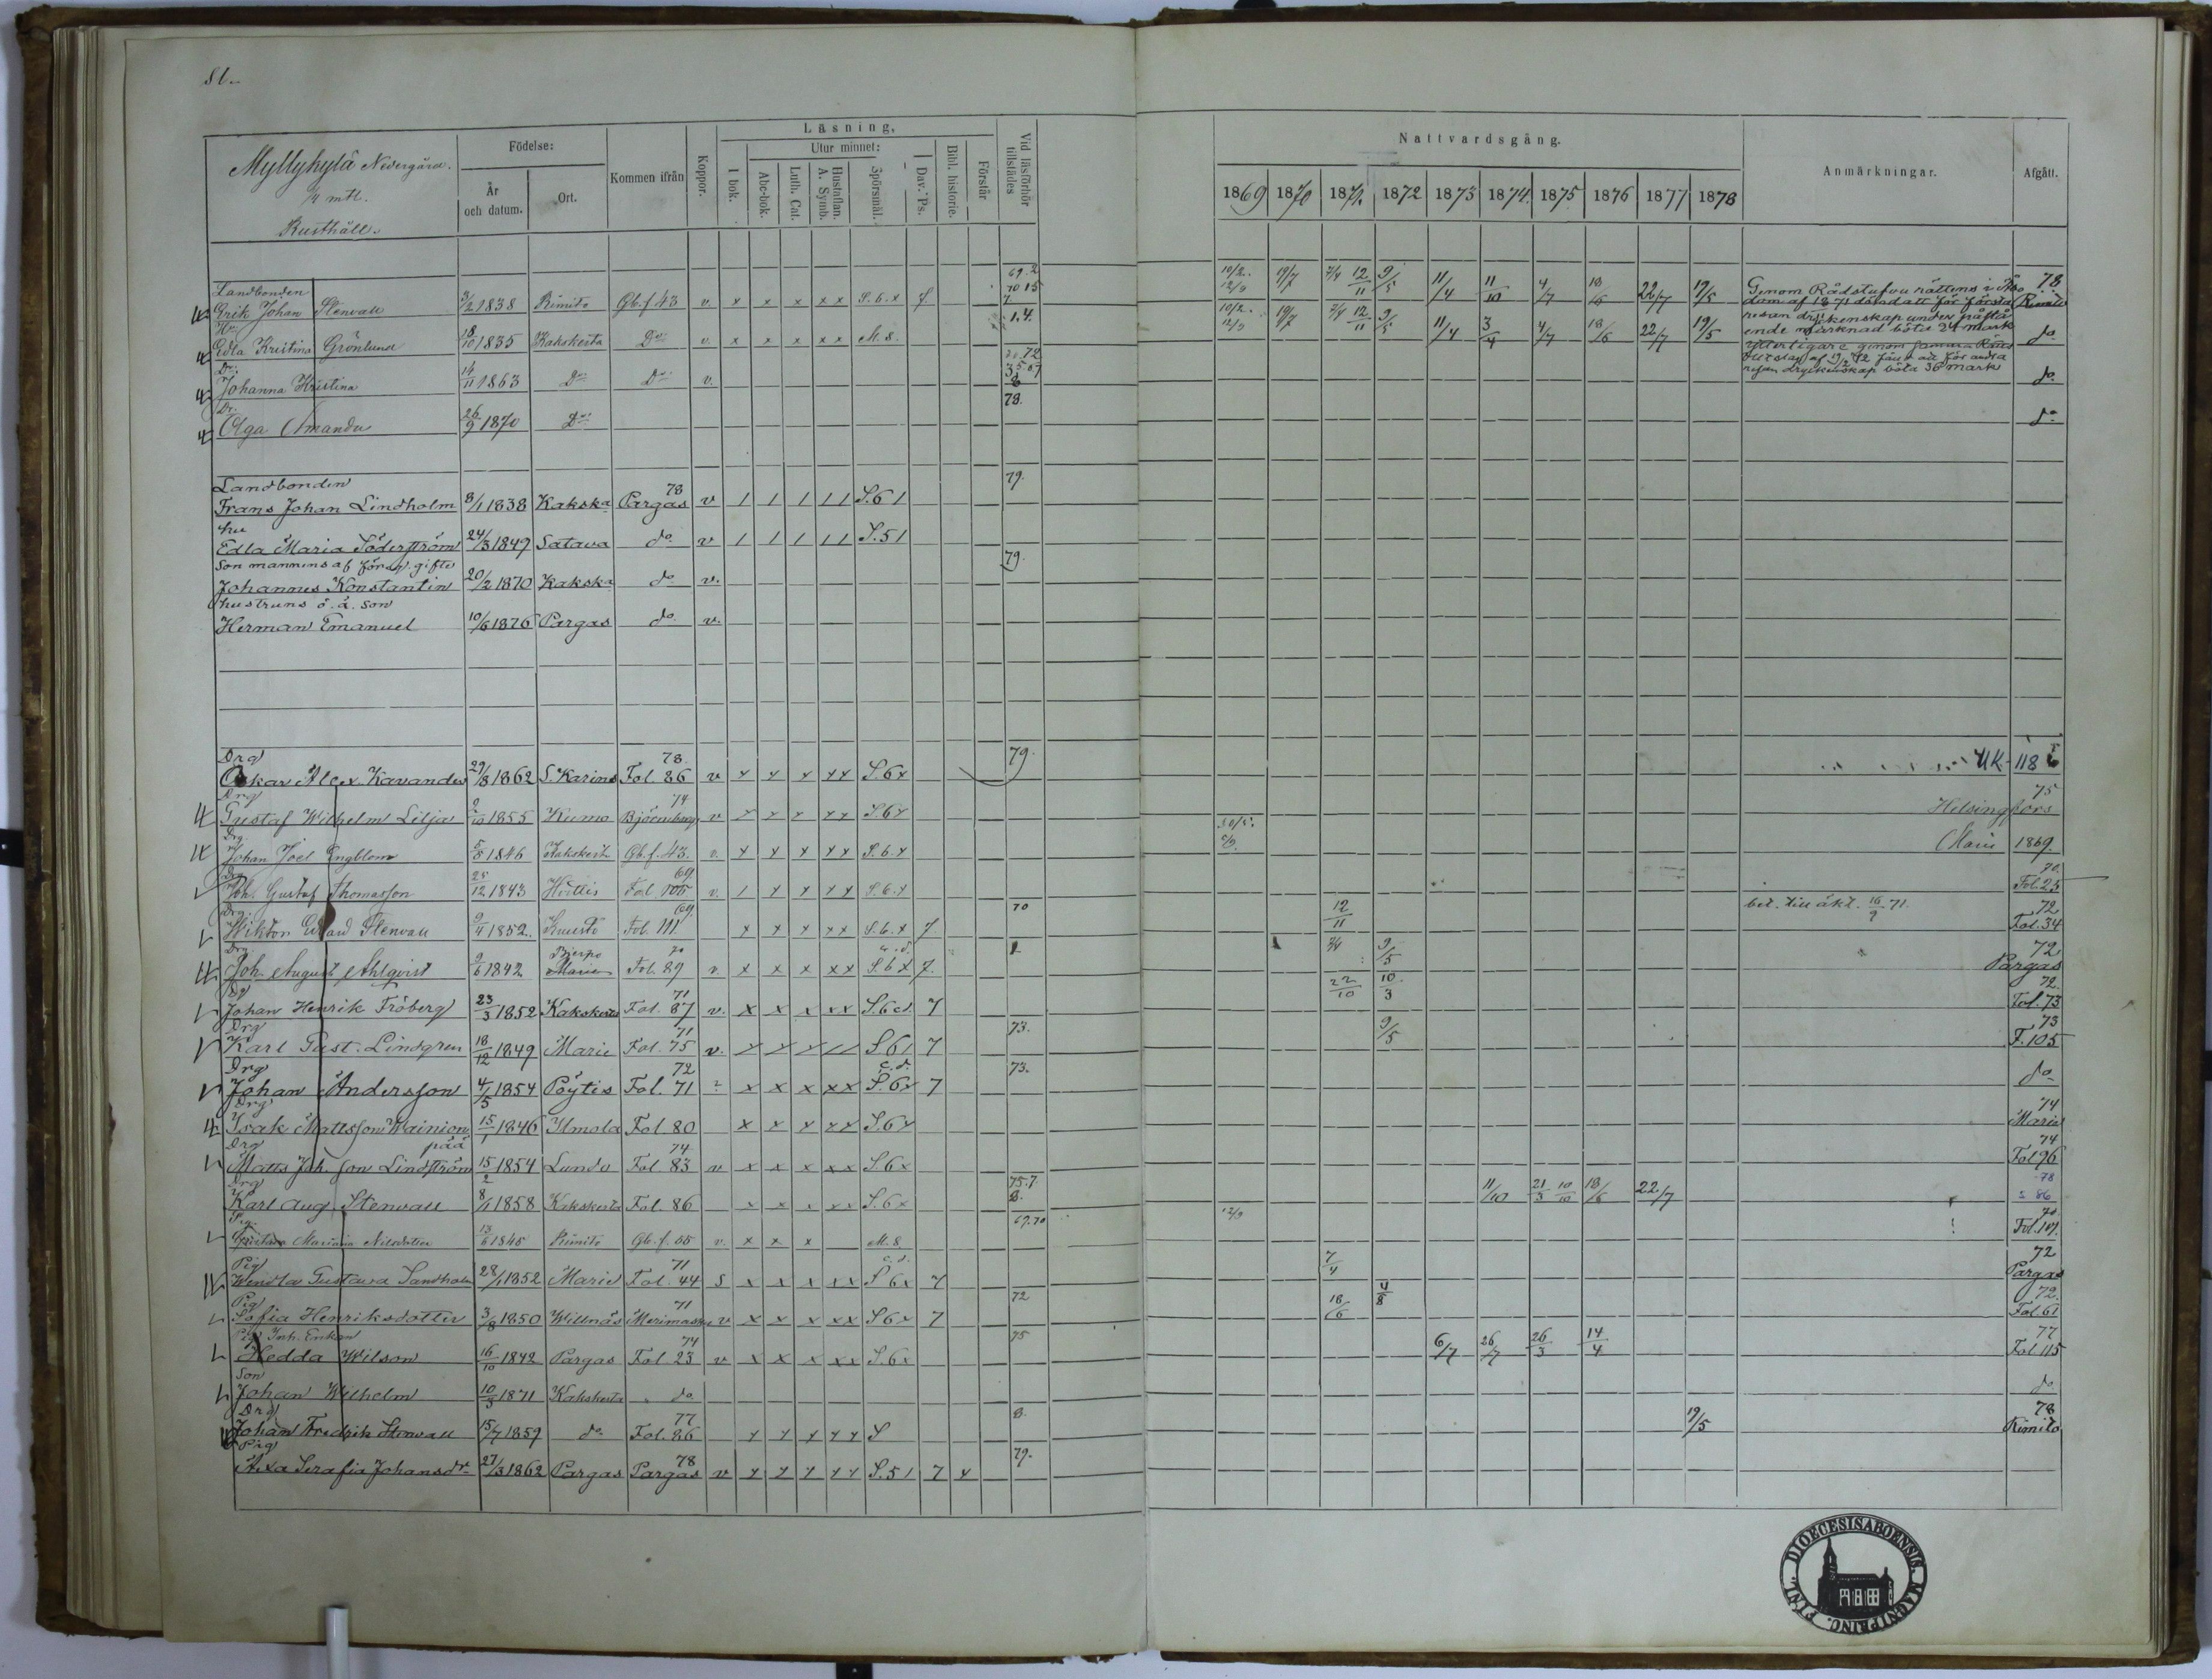 81.
Myllykylä Nedergård.
1/4 mtl.
Rusthåll.
Födelse:
År och datum.
Ort.
Kommen ifrån
Koppor.
Läsning,
I bok.
Utur minnet:
Abc-bok.
Luth. Cat.
Hustaflan. A. Symb.
Spörsmål.
Dav. Ps.
Bibl. historie.
Förstår
Vid läsförhör tillstädes
Nattvardsgång.
1869 1870 1871 1872 1873 1874 1875 1876 1877 1878
Anmärkningar.
Afgått.
Landbonden 69.2 70 15 78
Erik Johan Stenvall 3/2 1838 Rimito Gb.f.43 v. x x x x x S.6.x 7. 10/2. 12/9 19/7 2/4 12/11 9/5 11/4 11/10 4/7 18/6 22/7 19/5 Rimito
Genom Rådstufvu rättens i Åbo
dom af 1871 dömd att för första
resan dryckenskap under påstå
ende marknad böta 24 mark
ytterligare genom samma Rätts
Utslag af 19/2 72 för andra
resan dryckenskap böta 36 mark
Hu
Edla Kristina Grönlund 18/10 1835 Kakskerta Do v. x x x x x M.8. 1.4. 10/2. 12/9 19/7 2/4 12/11 9/5 11/4 3/4 4/7 18/6 22/7 19/5 do
Dr.
Johanna Kristina 14/11 1863 Do Do v. do
Dr. 78.
Olga Amanda 26/9 1870 Do do
Landbonden 78 79.
Frans Johan Lindholm 8/1 1838 Kakska Pargas v 1 1 1 1 1 S.6 1
hu
Edla Maria Söderström 24/3 1849 Satava do v 1 1 1 1 1 S.5 1
Son mannens af föreg. gifte 79.
Johannes Konstantin 20/2 1870 Kakska do v.
hustruns o.ä. son
Herman Emanuel 10/6 1876 Pargas do v.
Drg 78. 79.
Oskar Alex. Kavander 29/8 1862 S. Karins Fol. 86 v x x x x x S.6x UK 118
Drg 74 75
Gustaf Wilhelm Lilja 9/10 1855 Kumo Björneborg v x x x x x S.6x Helsingfors
Drg.
Johan Joel Engblom 5/8 1846 Kakskerta Gb.f.43. v. x x x x x S.6.x Marie 1869.
Drg 69 70.
Joh. Gustaf Thomasson 25/12 1843 Hvittis Fol 105 v. 1 x x x x S.6.x Fol. 25
Drg. 69 70 bet. till äkt. 16/9 71. 72
Wiktor Edvard Stenvall 9/4 1852. Kuusto Fol. 111 x x x x x S.6.x 7 12/11 Fol. 34
Drg. Bjerno 70 72
Joh. August Ahlqvist 9/6 1842 Marie Fol. 89 v. x x x x x S.6x 7. 2/4 9/5 Pargas
Dg 71 72.
Johan Henrik Fröberg 23/3 1852 Kakskerta Fol. 87 v. x x x x x S.6 cd. 7 22/10 10/3 Fol. 73
Drg 71 73. 73
Karl Gust. Lindgren 18/12 1849 Marie Fol. 75 v. S 6 1 7 9/5 F. 105
Drg 72 c.d. 73.
Johan Andersson 4/5 1854 Pöytis Fol. 71 x x x x x S.6x 7 do
Drg 74
Isak Mattsson Wainion 15/1 1846 Ilmola Fol. 80 x x x x x S.6x Marie
Drg pää 74 74
Matts Joh. son Lindström 15/2 1854 Lundo Fol. 83 v x x x x x S.6x Fol 96
Drg 75.7. 8. 78
Karl Aug. Stenvall 8/1 1858 Kakskerta Fol. 86 x x x x x S.6x 11/10 21/3 10/10 18/6 22/7 86
Pig. 69.70 70
Gustava Maria Nilsdotter 13/6 1845 Rimito Gb.f. 55 v. x x x M.8 12/9 Fol. 101.
Pig 71 c.d. 72
Wendla Gustava Sandholm 28/1 1852 Marie Fol. 44 S x x x x x S 6x 7 7/4 Pargas
Pig 71 72 72.
Sofia Henriksdotter 3/8 1850 Willnäs Merimasku v x x x x x S6x 7 18/6 4/8 Fol. 61
Pig Inh. Enkan 74 75 77
Hedda Wilson 16/10 1842 Pargas Fol. 23 v x x x x x S.6x 6/7 26/7 26/3 14/4 Fol. 115
Son
Johan Wilhelm 10/3 1871 Kakskerta do do
Drg 77 8. 78
Johan Fredrik Stenvall 15/7 1859 do Fol. 86 x x x x x S 19/5 Kimito
Pig 78 79.
Axa Serafia Johansdr 27/3 1862 Pargas Pargas v x x x x x S.5 1 7 x
DIOECESIS ABOENSIS. MAGNI PRINC. FINL.